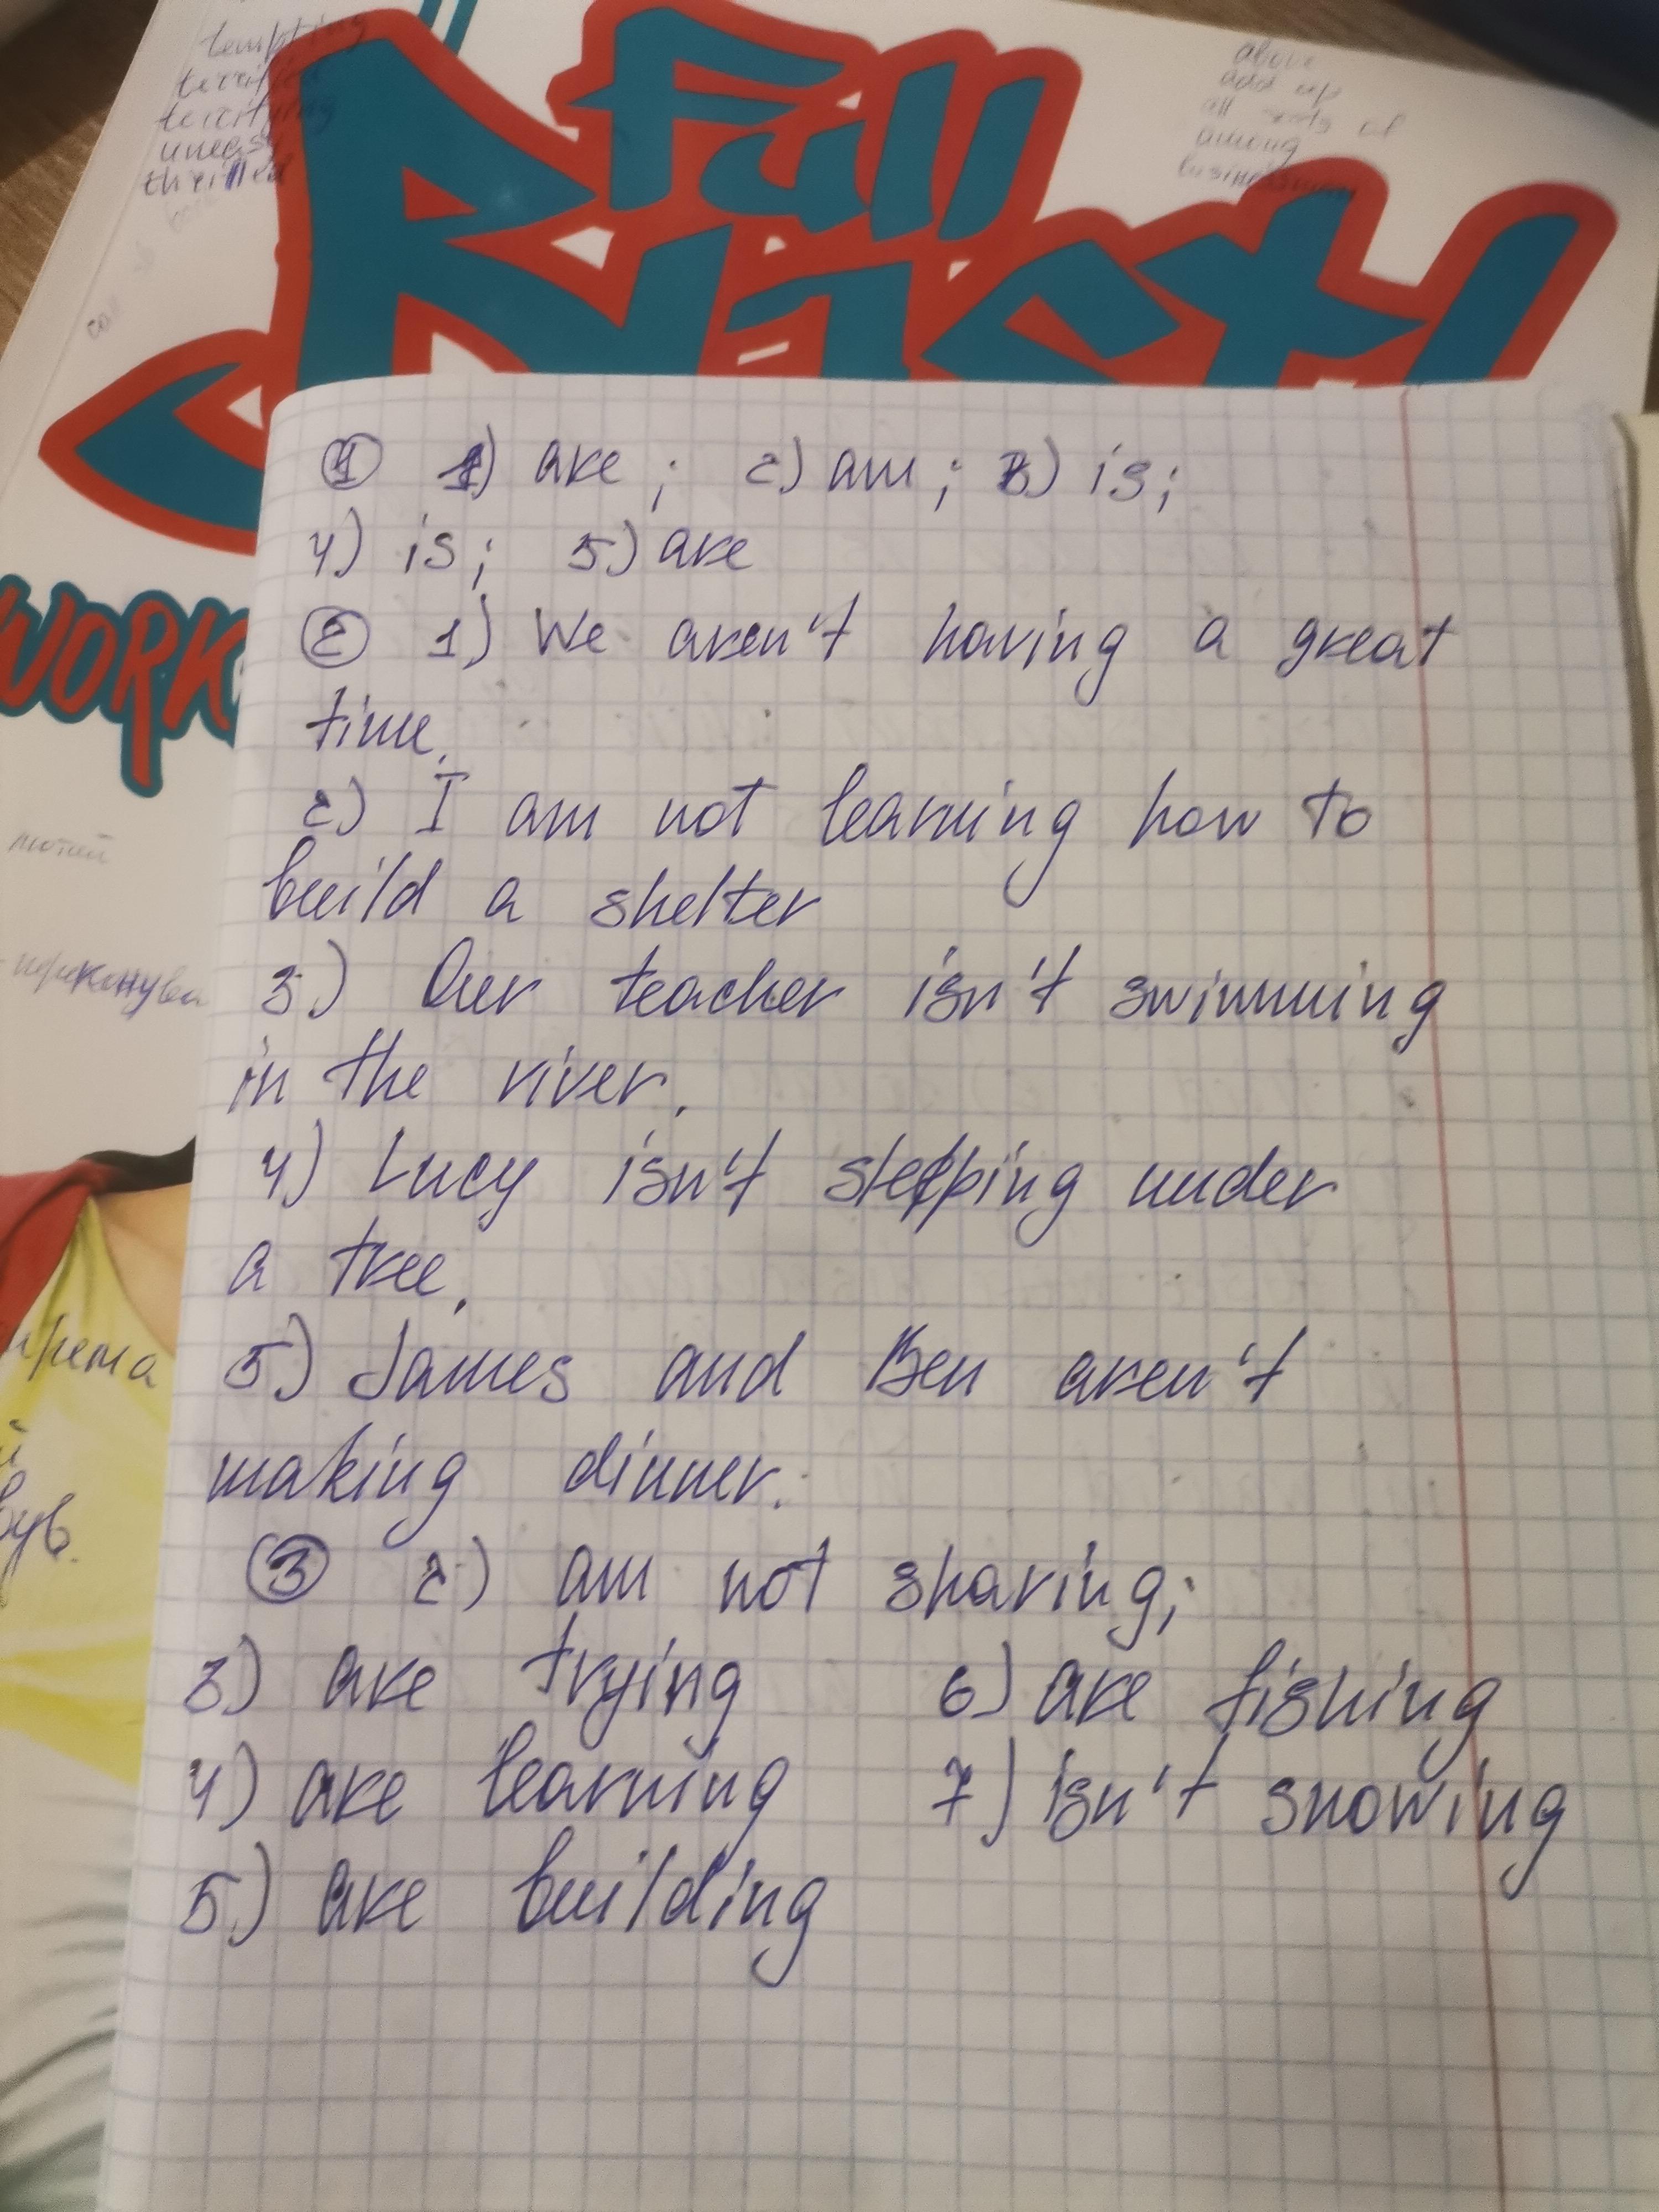 tempting
terrified
terrifying
uneasy
thrilled
above
add up
all sorts of
among
businessman
Full
Blast!
WORK
лютий
① 1) are ; 2) am ; 3) is ;
4) is ; 5) are
② 1) We aren't having a great
time.
2) I am not learning how to
build a shelter
3) Our teacher isn't swimming
in the river.
4) Lucy isn't sleeping under
a tree.
5) James and Ben aren't
making dinner.
③ 2) am not sharing;
3) are trying 6) are fishing
4) are learning 7) isn't snowing
5) are building